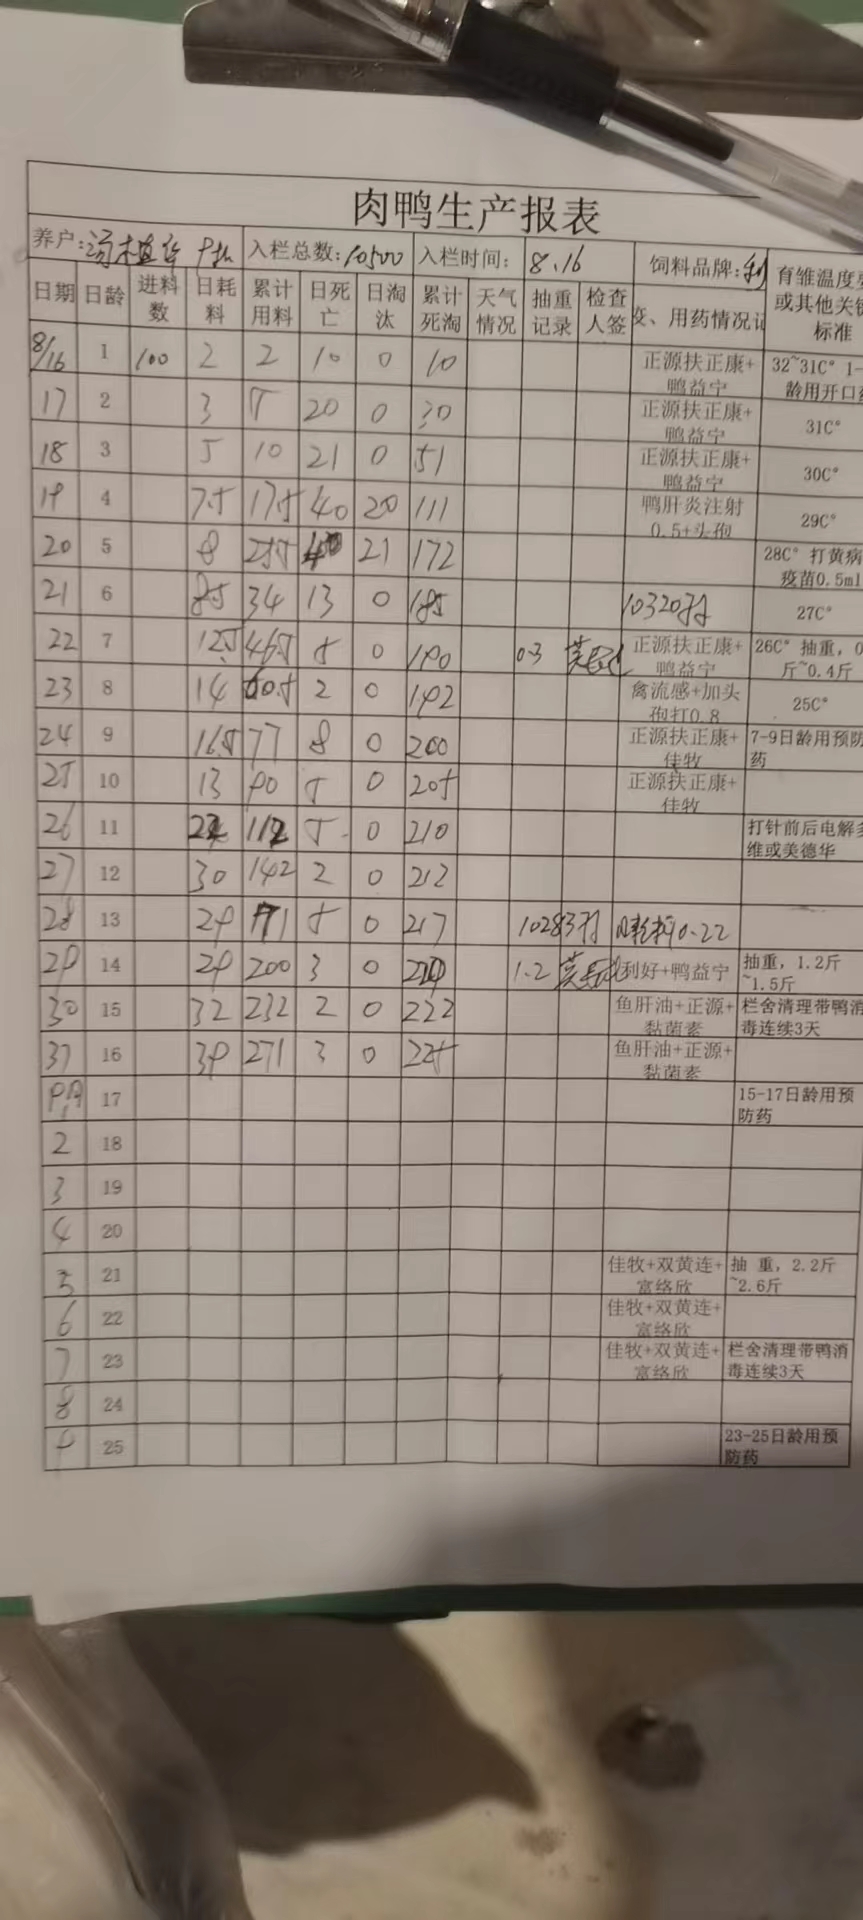 肉鸭生产报表
养户: 入栏总数:10500 入栏时间: 8.16 饲料品牌:利 育雏温度
日期 日龄 进料数 日耗料 累计用料 日死亡 日淘汰 累计死淘 天气情况 抽重记录 检查人签 变、用药情况记 或其他关键标准
8/16 1 100 2 2 10 0 10 正源扶正康+鸭益宁 32~31C° 1-龄用开口
17 2 3 5 20 0 30 正源扶正康+鸭益宁 31C°
18 3 5 10 21 0 51 正源扶正康+鸭益宁 30C°
19 4 7.5 17.5 40 20 111 鸭肝炎注射0.5+头孢 29C°
20 5 8 25.5 40 21 172 28C° 打黄病疫苗0.5ml
21 6 8.5 34 13 0 185 10320 27C°
22 7 12.5 46.5 5 0 190 0.3 正源扶正康+鸭益宁 26C° 抽重,0斤~0.4斤
23 8 14 60.5 2 0 192 禽流感+加头孢打0.8 25C°
24 9 16.5 77 8 0 200 正源扶正康+佳牧 7-9日龄用预防药
25 10 13 90 5 0 205 正源扶正康+佳牧
26 11 22 112 5 0 210 打针前后电解多维或美德华
27 12 30 142 2 0 212
28 13 29 171 5 0 217 10283 0.22
29 14 29 200 3 0 220 1.2 利好+鸭益宁 抽重,1.2斤~1.5斤
30 15 32 232 2 0 222 鱼肝油+正源+黏菌素 栏舍清理带鸭消毒连续3天
31 16 39 271 3 0 225 鱼肝油+正源+黏菌素
9.1 17 15-17日龄用预防药
2 18
3 19
4 20
5 21 佳牧+双黄连+富络欣 抽 重,2.2斤~2.6斤
6 22 佳牧+双黄连+富络欣
7 23 佳牧+双黄连+富络欣 栏舍清理带鸭消毒连续3天
8 24
9 25 23-25日龄用预防药